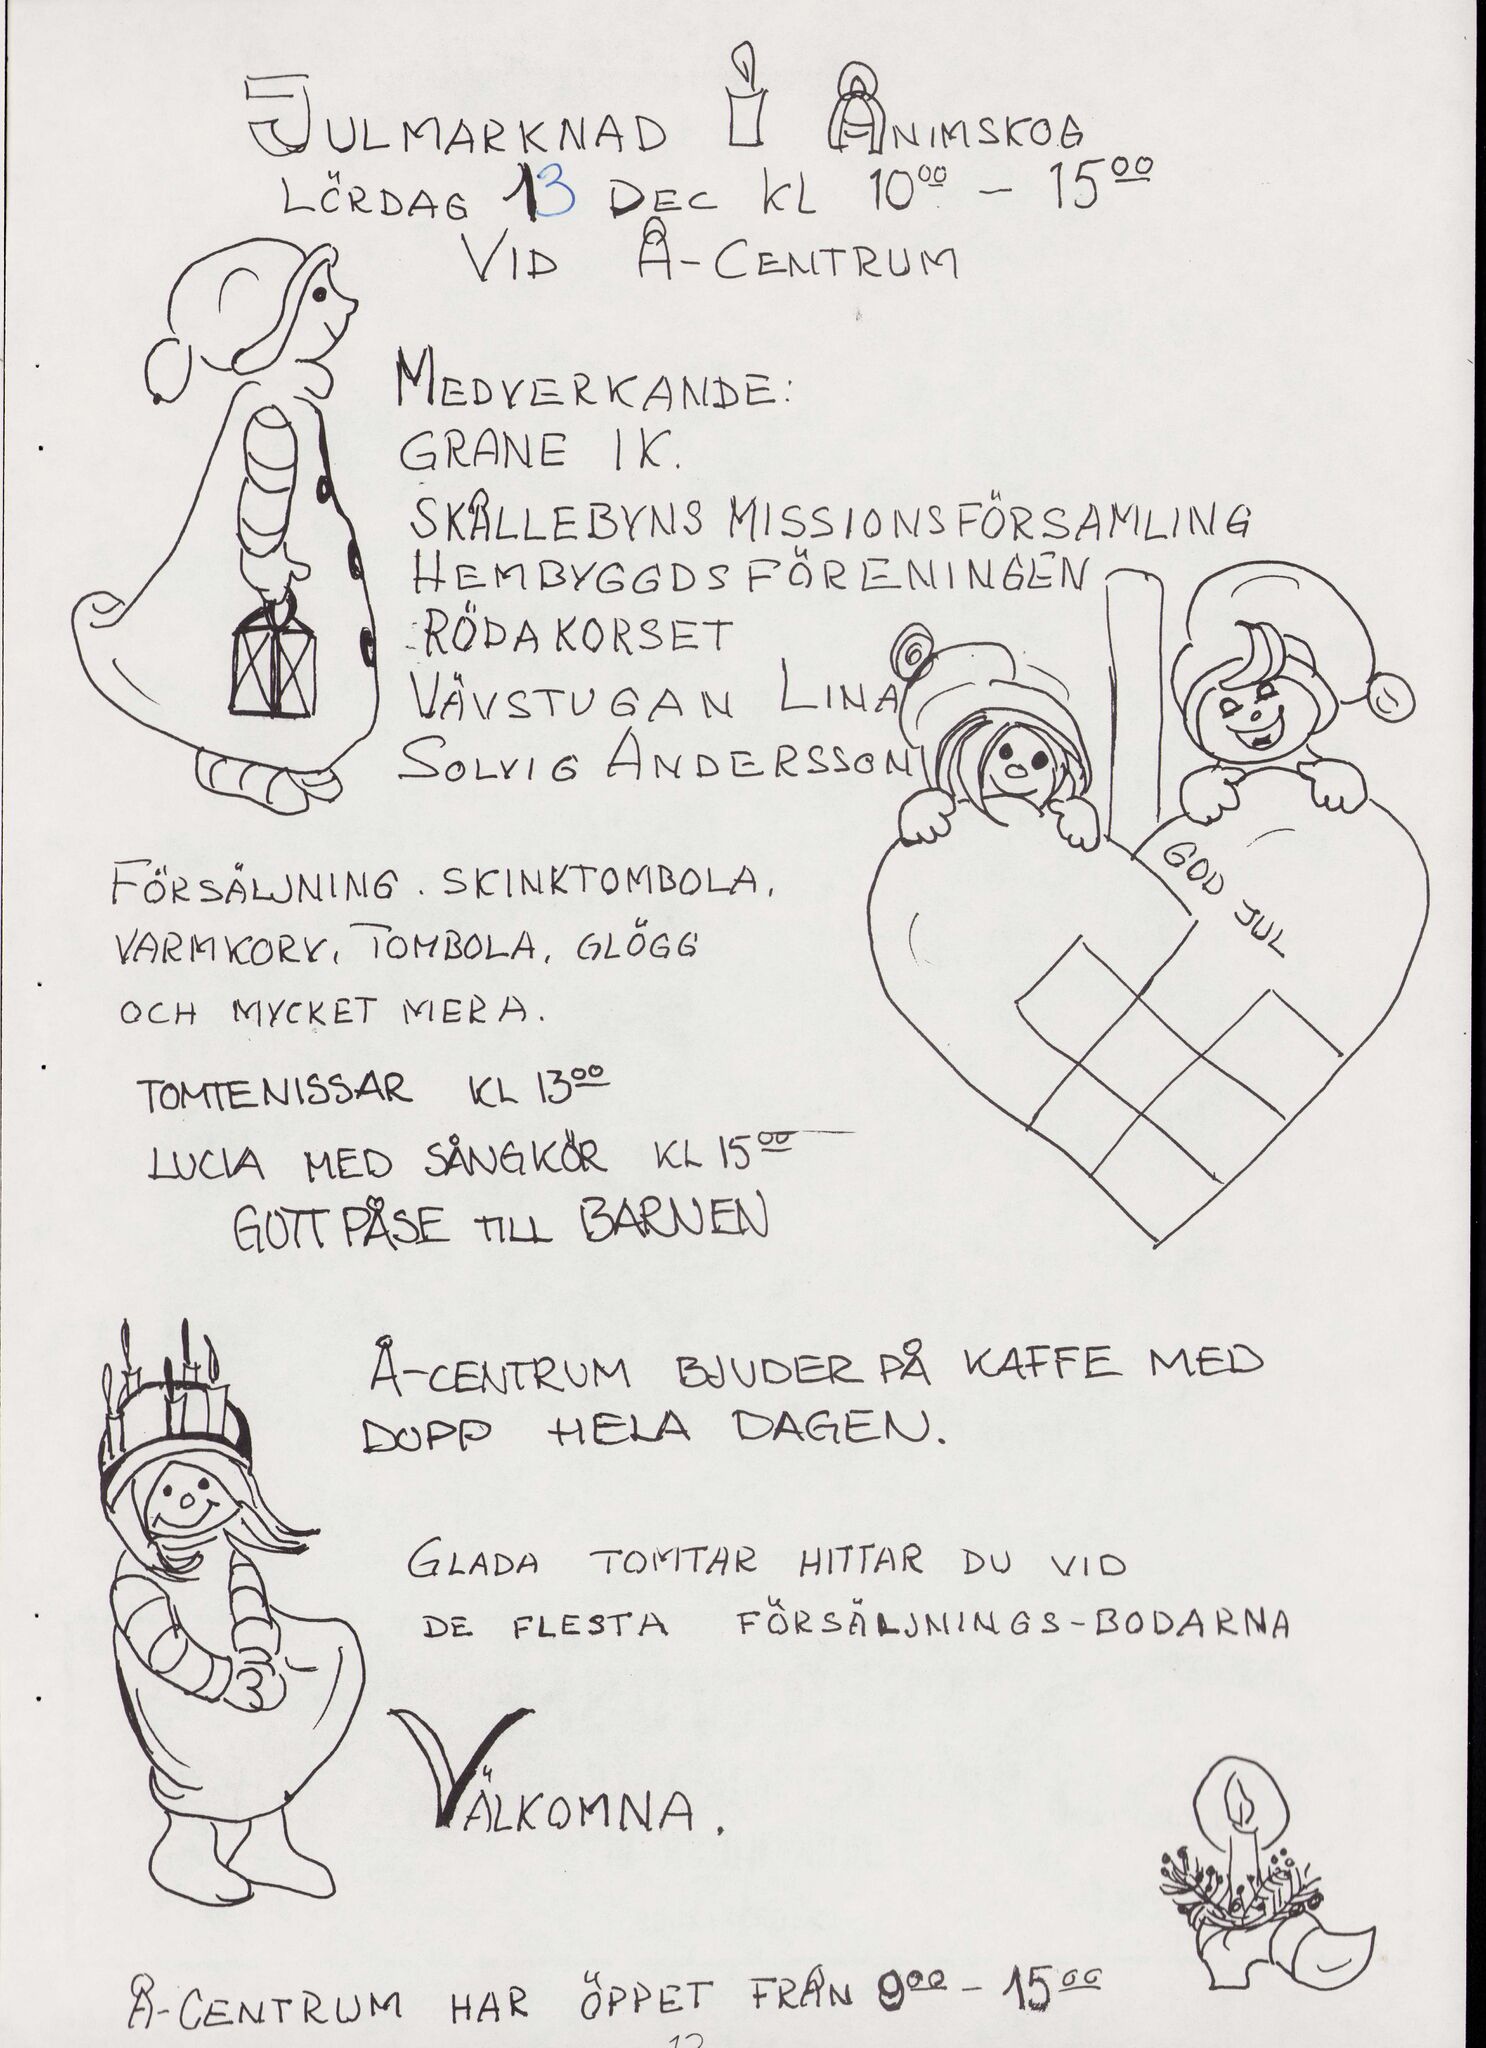 JULMARKNAD I ÅNIMSKOG
LÖRDAG 13 DEC KL 10⁰⁰ - 15⁰⁰
VID Å-CENTRUM
MEDVERKANDE:
GRANE IK.
SKÅLLEBYNS MISSIONSFÖRSAMLING
HEMBYGGDSFÖRENINGEN
RÖDAKORSET
VÄVSTUGAN LINA
SOLVIG ANDERSSON
GOD JUL
FÖRSÄLJNING. SKINKTOMBOLA,
VARMKORV, TOMBOLA, GLÖGG
OCH MYCKET MERA.
TOMTENISSAR KL 13⁰⁰
LUCIA MED SÅNGKÖR KL 15⁰⁰
GOTTPÅSE TILL BARNEN
Å-CENTRUM BJUDER PÅ KAFFE MED
DOPP HELA DAGEN.
GLADA TOMTAR HITTAR DU VID
DE FLESTA FÖRSÄLJNINGS-BODARNA
VÄLKOMNA.
Å-CENTRUM HAR ÖPPET FRÅN 9⁰⁰ - 15⁰⁰